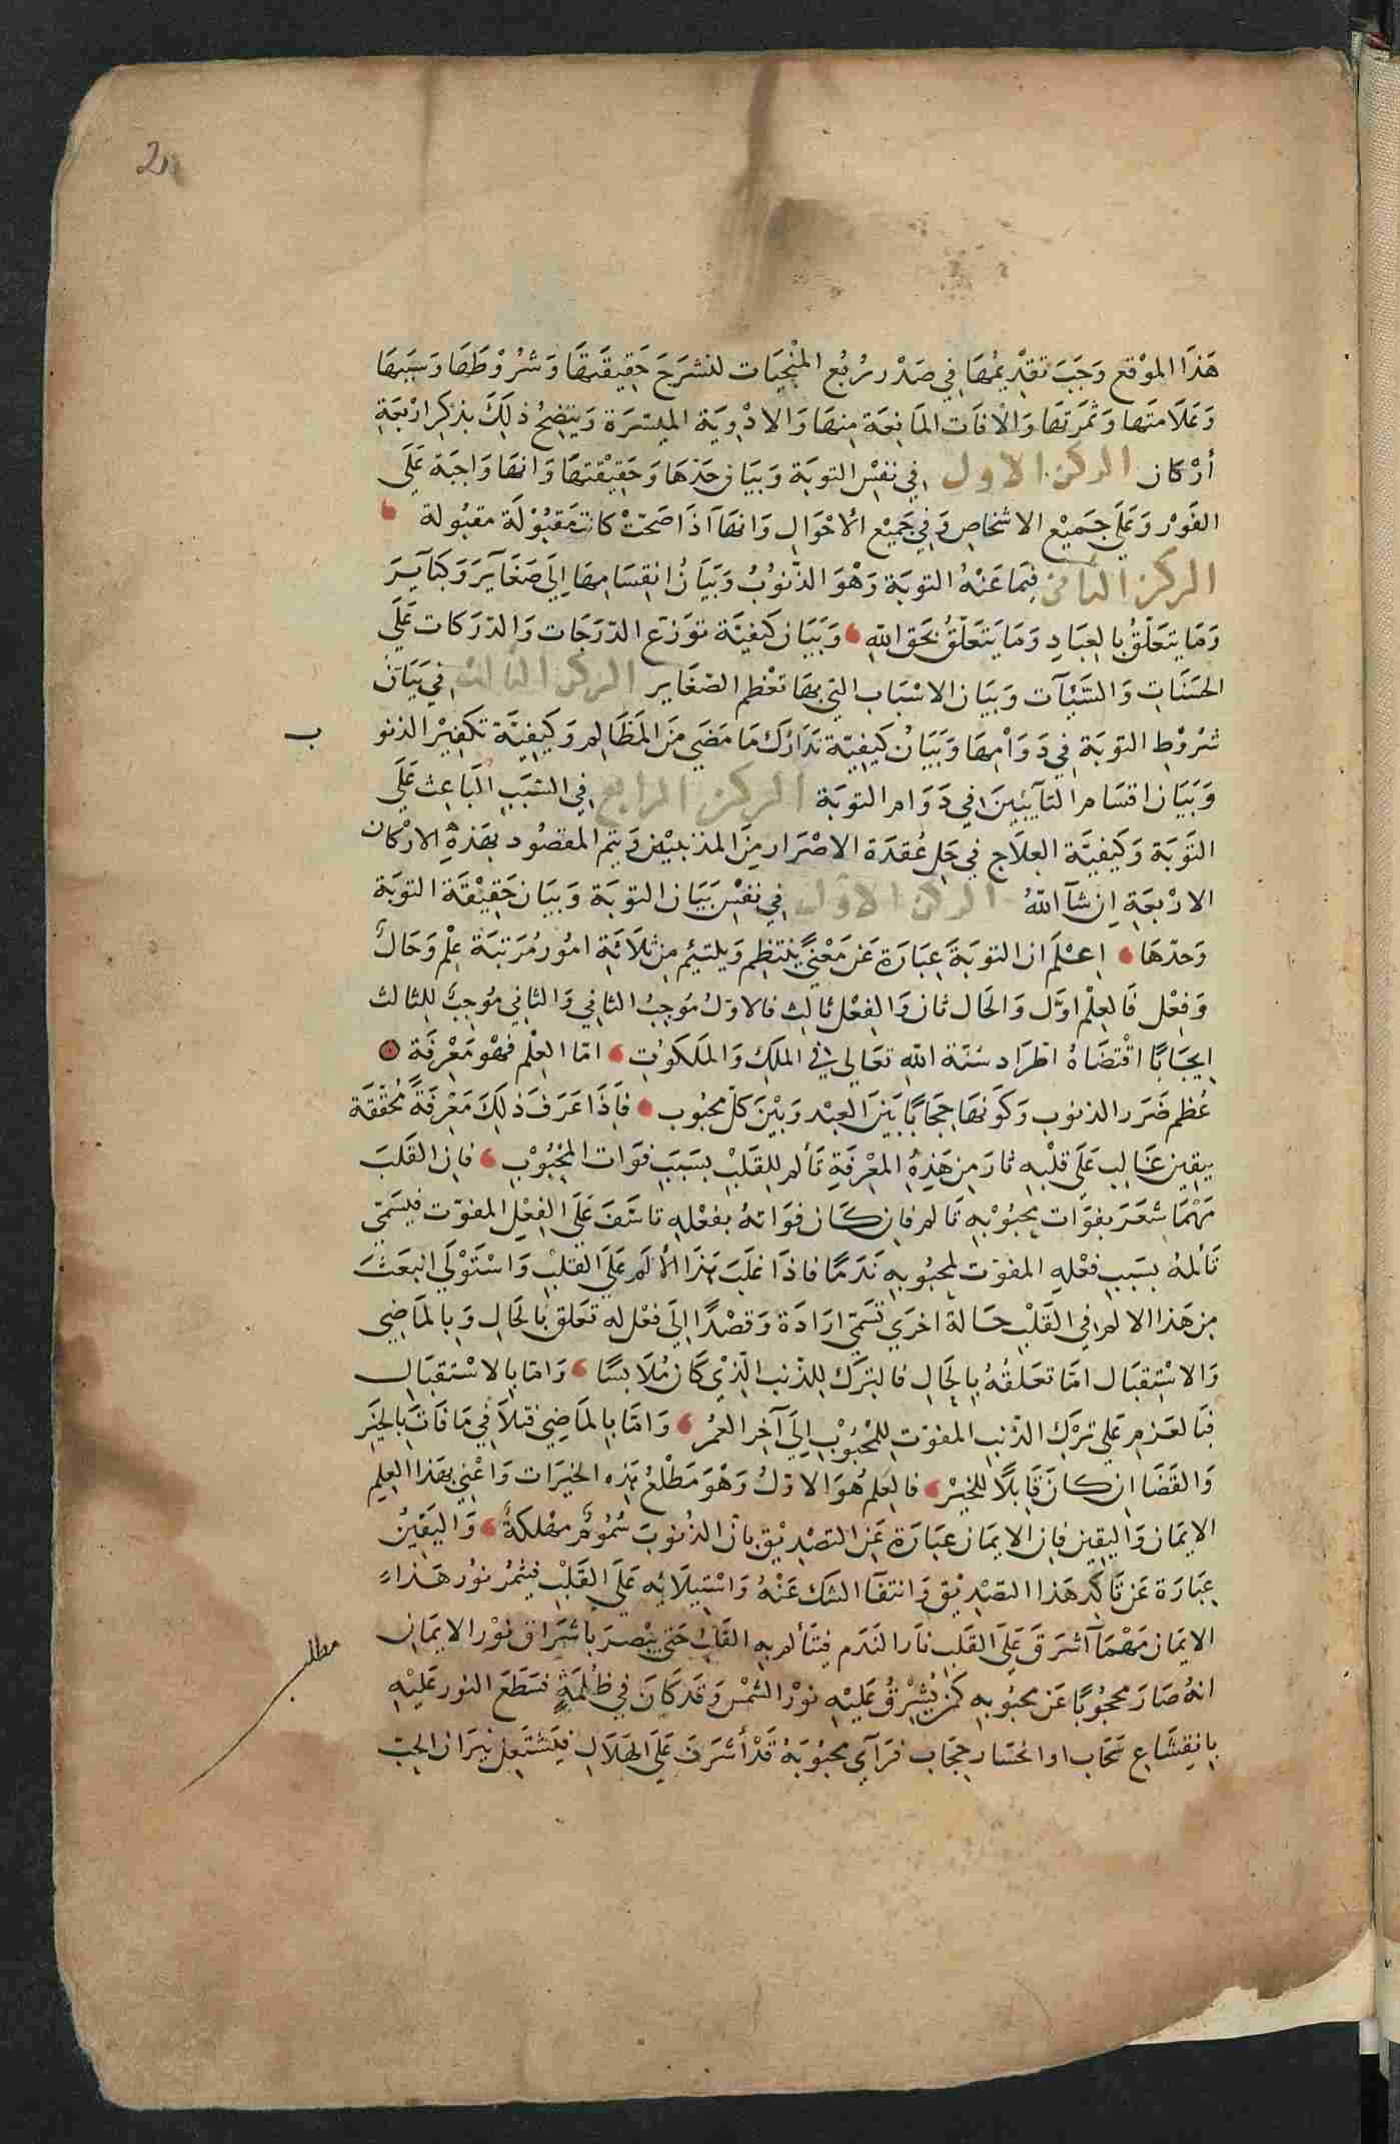 2
هَذَا الموْقع وَجَبَ تقدِيمُهَا فِي صَدْر رُبُع المْنجِيَات لنشرَحَ حَقِيقَتهَا وَشُرُوْطهَا وَسَبَبهَا
وَعَلَامَتهَا وَثمَرَتهَا وَالآفَات المَانِعَة مِنهَا وَالادْوِيَة الميسّرَة وَيَتضِحُ ذلِكَ بذكرِ ارْبَعَةِ
أرْكان الركن الاول في نفسِ التوبَة وَبيَان حَدّهَا وَحَقِيْقتهَا وَانهَا وَاجبَة عَلَى
الفَوْر وَعَلَى جَمِيْع الاشخاصِ وَفي جَمِيْع الأحْوَال وَانهَا اذَا صَحّتْ كانت مَقبُوْلَة مقبُولة
الركن الثاني فيمَا عَنْهُ التوبَة وَهْوَ الذّنوُبُ وَبَيَانُ انقِسَامِهَا اِلى صَغَآيَر وَكبَآيرَ
وَمَا يتعَلّقُ بالعِبَادِ وَمَا يَتَعَلّقُ بحَق اللهِ وَبَيَان كَيفيّة توَزع الدّرَجَات وَالدّرَكات عَلَى
الحَسَنَاتِ وَالسَّيِّآت وَبيَان الاسْبَاب التي بهَا تعْظم الصّغاير الركن الثالث في بَيَان
شرُوْطِ التوبَة في دَوَامِهَا وَبَيَانُ كَيفِيّة تدَارُك مَا مَضَى مَن المَظَالم وَكَيفِيَّة تكفِيْر الذنو
ب
وَبَيَان اقسَام التآيبِيْنَ في دَوَام التوبَة الركن الرابع في السَّبَبِ البَاعِث عَلَى
التَوبَة وَكيفِيَّة العِلَاج في حَل عُقدَة الاصْرَار مِنَ المذنبيْن وَيتم المقصُود بهَذهِ الارْكان
الارْبعَةِ اِن شآ اللهُ الركن الاول في نفسِ بَيَان التوبَة وَبَيَان حَقِيْقَة التوبَة
وَحدّهَا اِعْلَم ان التوبَةَ عِبَارَة عَن مَعْنًى يَنتظِم وَيلتَئِم مِن ثلَاثَةِ امُور مُرَتبَة عِلْم وَحَال
وَفِعْل فَالعِلْم اوَّل وَالحَال ثان وَالفِعْل ثالِث فالاوّلُ مُوجِبُ الثاني وَالثاني مُوجِبٌ للِثالث
اِيجَابًا اقْتضَاهُ اطّرَاد سُنّة اللهِ تعَالى في الملكِ وَالمَلَكُوتِ امّا العِلْم فهْو مَعْرِفَة
عُظم ضَرَر الذنوب وَكَونهَا حِجَابًا بَينَ العِبْد وَبْيْنَ كلّ محبُوب فاِذَا عَرَفَ ذلِكَ مَعْرِفَةً مُحَقّقَة
بيِقِين غَالِب عَلَى قلْبِهِ ثارَ مِن هَذِهِ المعْرِفَةِ تألم للِقَلْبِ بسَبَبِ فوَات المحْبُوْبِ فاِن القَلبَ
مَهْمَا شعَرَ بفوَات محبُوْبِهِ تَالم فان كَان فوَاتهُ بفعْلِهِ تاسّفَ عَلَى الفِعْلِ المفوّت فيسَمّى
تَألمهُ بسَببِ فعْلهِ المفوّت لمحبُوبِه نَدَمًا فاذَا غلَبَ هَذا الألَم عَلَى القلْبِ وَاسْتَوْلَى انبَعَثَ
مِن هَذا الالم في القَلْبِ حَالة اخرَى تسَمّى ارَادَة وَقصْدًا اِلَى فعْل له تعَلق بالحَالِ وَبالمَاضِي
وَالاسْتِقبَال امّا تعَلقهُ بالحَالِ فالتَرك للِذّنب الّذِي كَان مُلَابسًا وَامّا بالاسْتِقبَالِ
فبَالعَزمِ عَلى ترْكِ الذّنبِ المفوّتِ للمحْبُوْبِ اِلَى آخِر العمُر وَامّا بالمَاضِي فتلَا في مَا فَاتَ بالجَبَرِ
وَالقَضَا ان كانَ قابلًا للجَبْر فالعِلمُ هُوَ الاوّلُ وَهْوَ مَطْلعُ هَذِهِ الخيرَات وَاعْني بهَذا العِلِم
الايمَان وَاليقِين فان الايمَان عبَارَة عَن التصْدِيْق بانّ الذنوبَ سُمُومٌ مهْلكةٌ وَاليَقِيْنُ
عِبَارَة عَن تَاكّد هَذا التصْدِيْق وَانتفآ الشك عَنْهُ وَاسْتِيلَائِه عَلَى القَلْبِ فيثمرُ نوُر هَذا
الايمَان مَهْمَا آشرَقَ عَلَى القَلبِ نارَ النَدَم فيَتَألم بهِ القَلبُ حَتى يبْصرَ باشرَاق نوْر الايمَانِ
مطلب
انهُ صَارَ محجُوبًا عَن محبُوبهِ كمَن يُشْرِقُ عَليْهِ نوْر الشمْس وَقدْ كَانَ في ظُلمَةٍ فسَطَعَ النور عَليْهِ
باِنقِشاعِ سَحَاب او انحسَار حِجَاب فرَآى محبُوبَهُ قَدْ أشرَفَ عَلَى الهَلَالِ فيَشتَعِل نيرَان الحبّ